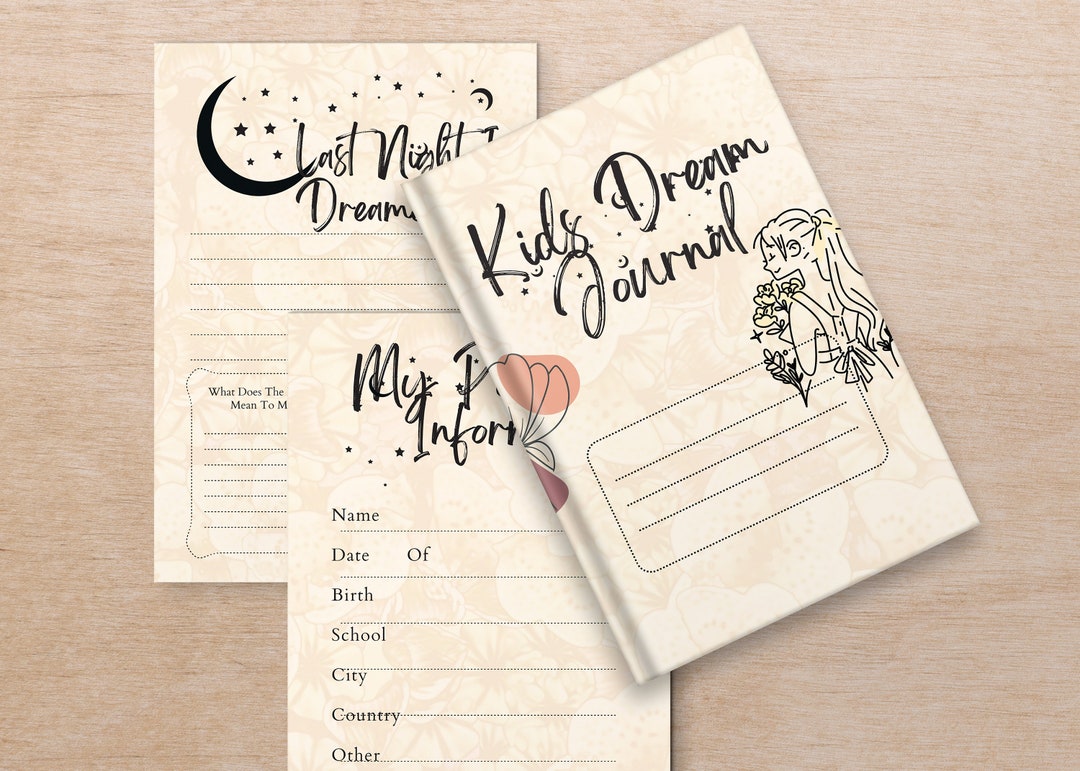 Last Night I
Dream
What Does The
Mean To M
My
Infor
Name
Date Of
Birth
School
City
Country
Other
Kids Dream
Journal